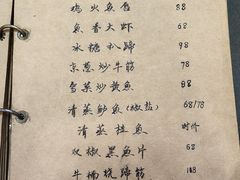 鸡火鱼唇 88
鱼香大虾 68
冰糖扒蹄 98
京葱炒牛筋 78
雪菜炒黄鱼 88
清蒸鲥鱼(椒盐) 68/78
清蒸桂鱼 时价
双椒黑鱼片 68
牛腩烧蹄筋 108